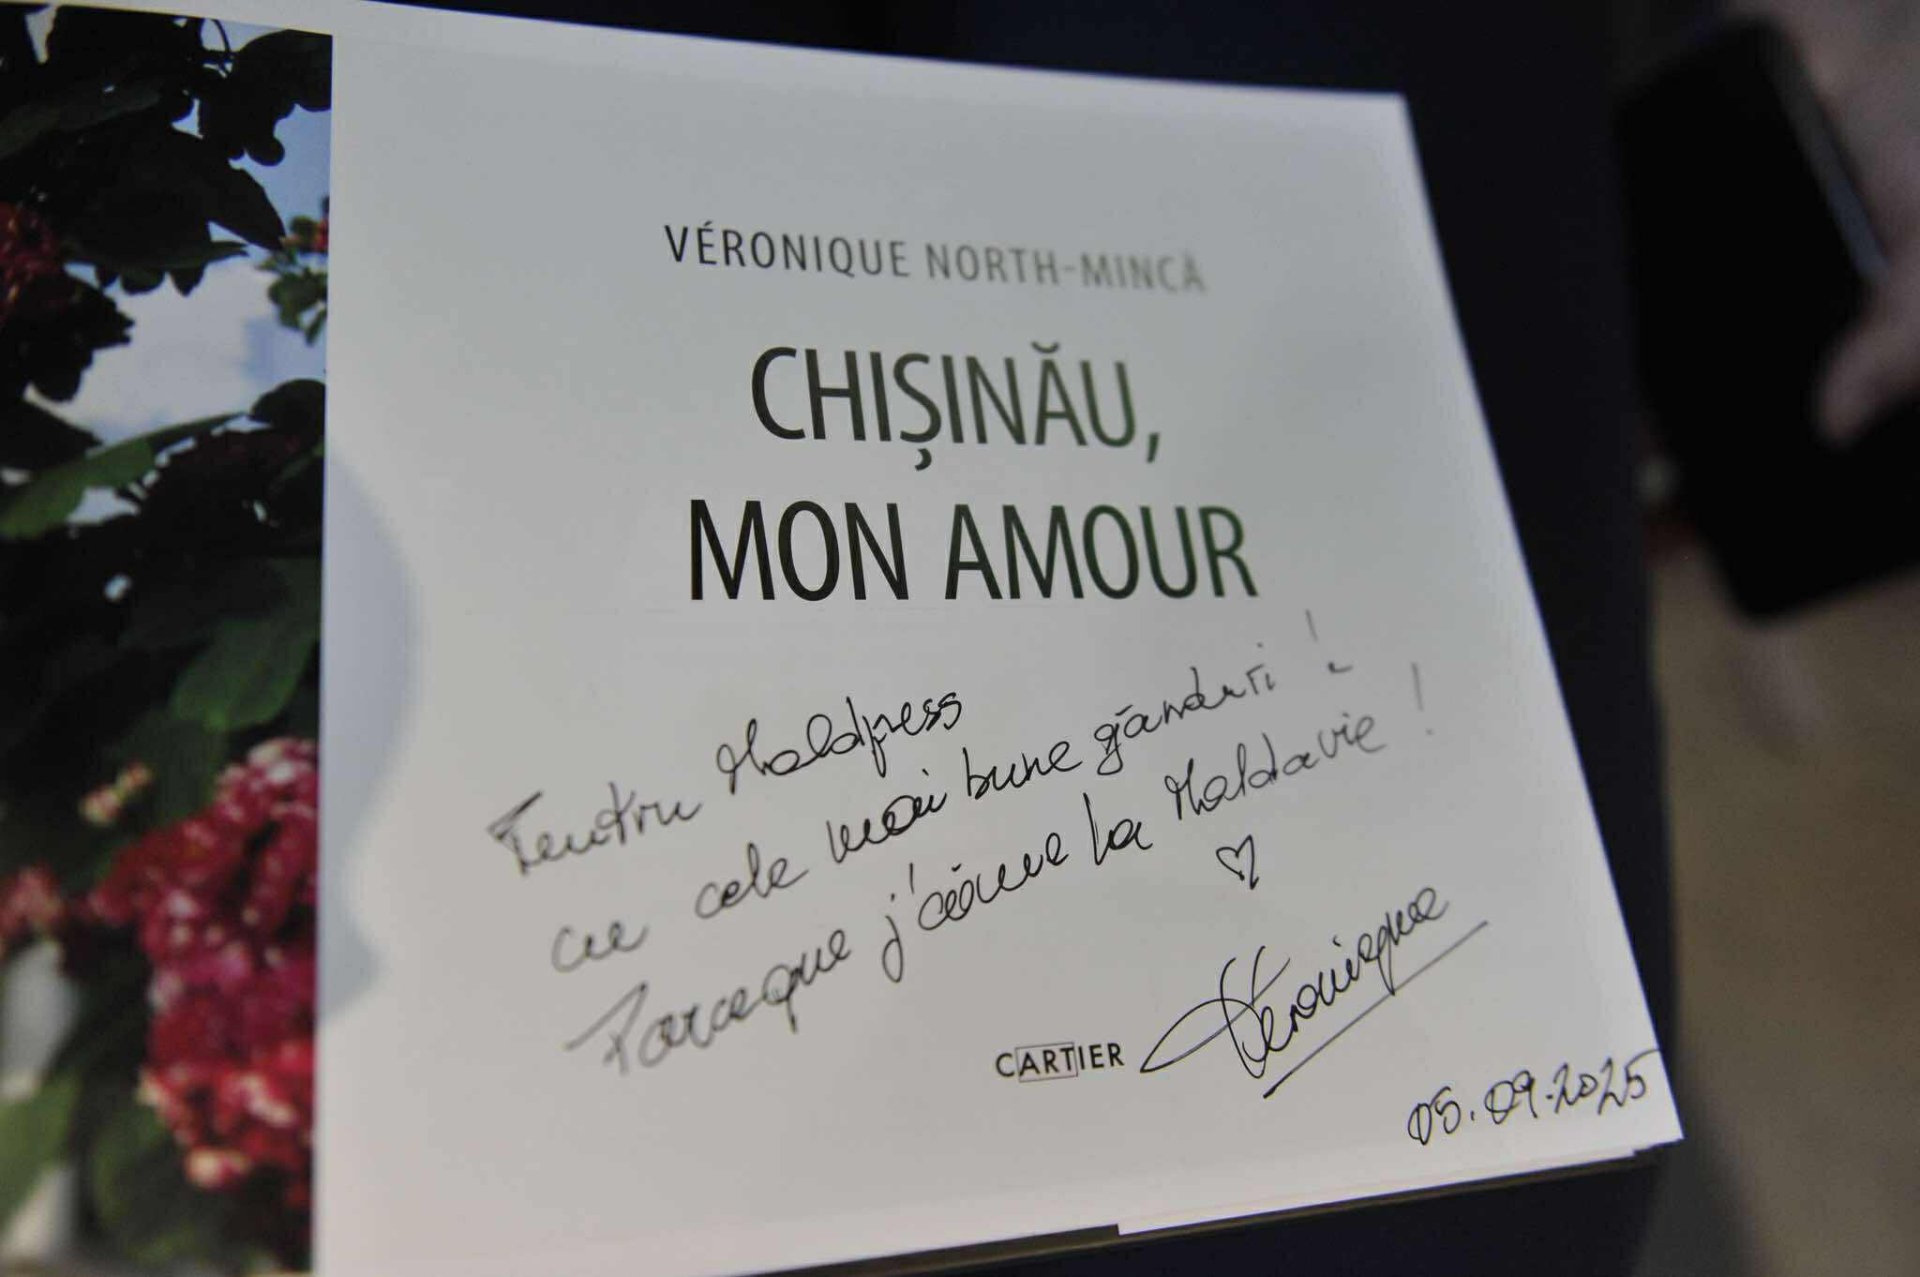 VÉRONIQUE NORTH-MINCĂ
CHIȘINĂU,
MON AMOUR
Pentru Moldpress
cu cele mai bune gânduri !
Parce que j'aime la Moldavie !
♡
Véronique
CARTIER
05.09.2025